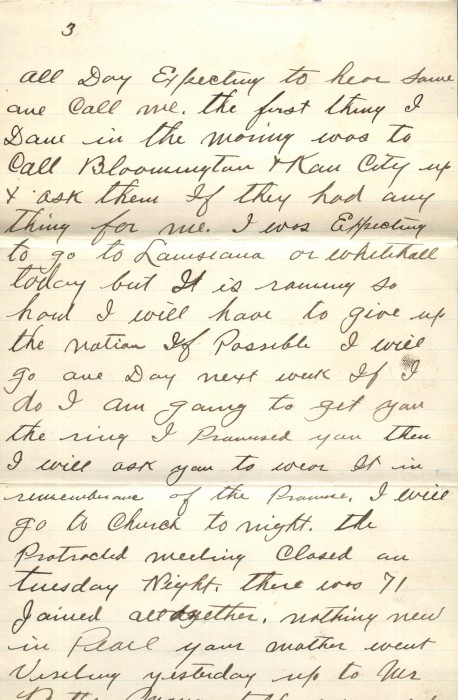 3
all Day Expecting to hear some
one Call me. the first thing I
Done in the moring was to
Call Bloomington & Kan City up
& ask them If they had any
thing for me. I was Expecting
to go to Louisiana or whitehall
today but It is raining so
hard I will have to give up
the notion If Possible I will
go one Day next week If I
do I am going to get you
the ring I Promised you then
I will ask you to wear It in
rememberance of the Promise. I will
go to Church to night. the
Protracted meeting Closed on
tuesday Night. there was 71
Joined alltogether. nothing new
in Pearl your mother went
yesterday up to Mr